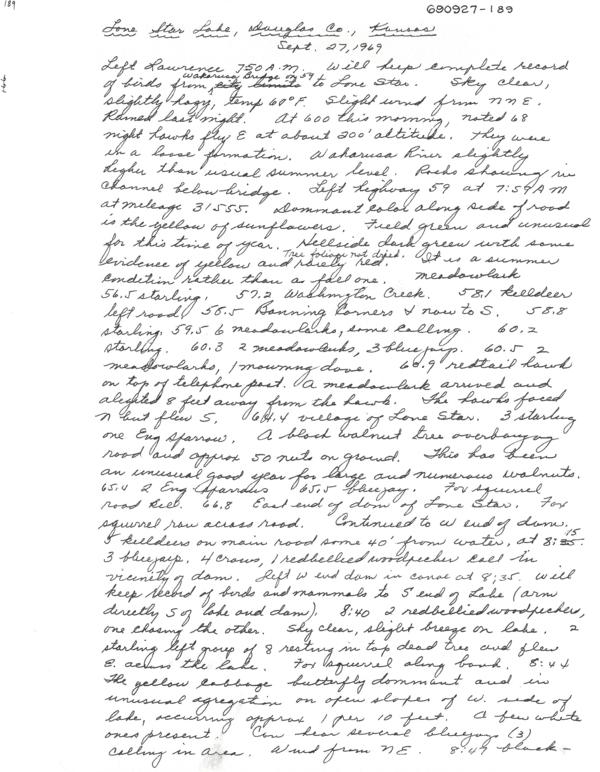 189
690927-189
166
Lone Star Lake, Douglas Co., Kansas
Sept. 27, 1969
Left Lawrence 750 A.M. Will keep complete record
Wakarusa Bridge on 59
of birds from city limits to Lone Star. Sky clear,
slightly hazy, temp 60°F. Slight wind from NNE.
Rained last night. At 600 this morning, noted 68
night hawks fly E at about 200' altitude. They were
in a loose formation. Wakarusa River slightly
higher than usual summer level. Rocks showing in
channel below bridge. Left highway 59 at 7:59 AM
at mileage 31555. Dominant color along side of road
is the yellow of sunflowers. Field green and unusual
for this time of year. Hillside dark green with some
Tree foliage not dried.
evidence of yellow and rarely red. It is a summer
condition rather than a fall one. meadowlark
56.5 starling. 57.2 Washington Creek. 58.1 killdeer
left road. 58.5 Banning Corners & now to S. 58.8
starling. 59.5 6 meadowlarks, some calling. 60.2
starling. 60.3 2 meadowlarks, 3 bluejays. 60.5 2
meadowlarks, 1 mourning dove. 60.9 redtail hawk
on top of telephone post. A meadowlark arrived and
alighted 8 feet away from the hawk. The hawks faced
N but flew S. 64.4 village of Lone Star. 3 starling
one Eng sparrow. A black walnut tree overhanging
road and approx 50 nuts on ground. This has been
an unusual good year for large and numerous walnuts.
65.4 2 Eng Sparrows 65.5 bluejay. Fox squirrel
road kill. 66.8 East end of dam of Lone Star. Fox
squirrel ran across road. Continued to W end of dam.
15
5 killdeers on main road some 40' from water, at 8:35.
3 bluejays. 4 crows, 1 redbellied woodpecker call in
vicinity of dam. Left W end dam in canoe at 8:35. Will
keep record of birds and mammals to S end of Lake (arm
directly S of lake and dam). 8:40 2 redbellied woodpeckers,
one chasing the other. Sky clear, slight breeze on lake. 2
starling left group of 8 resting in top dead tree and flew
E. across the lake. Fox squirrel along bank. 8:44
The yellow cabbage butterfly dominant and in
unusual agregation on open slopes of W. side of
lake, occurring approx 1 per 10 feet. A few white
ones present. Can hear several bluejays (3)
calling in area. Wind from NE. 8:49 black-